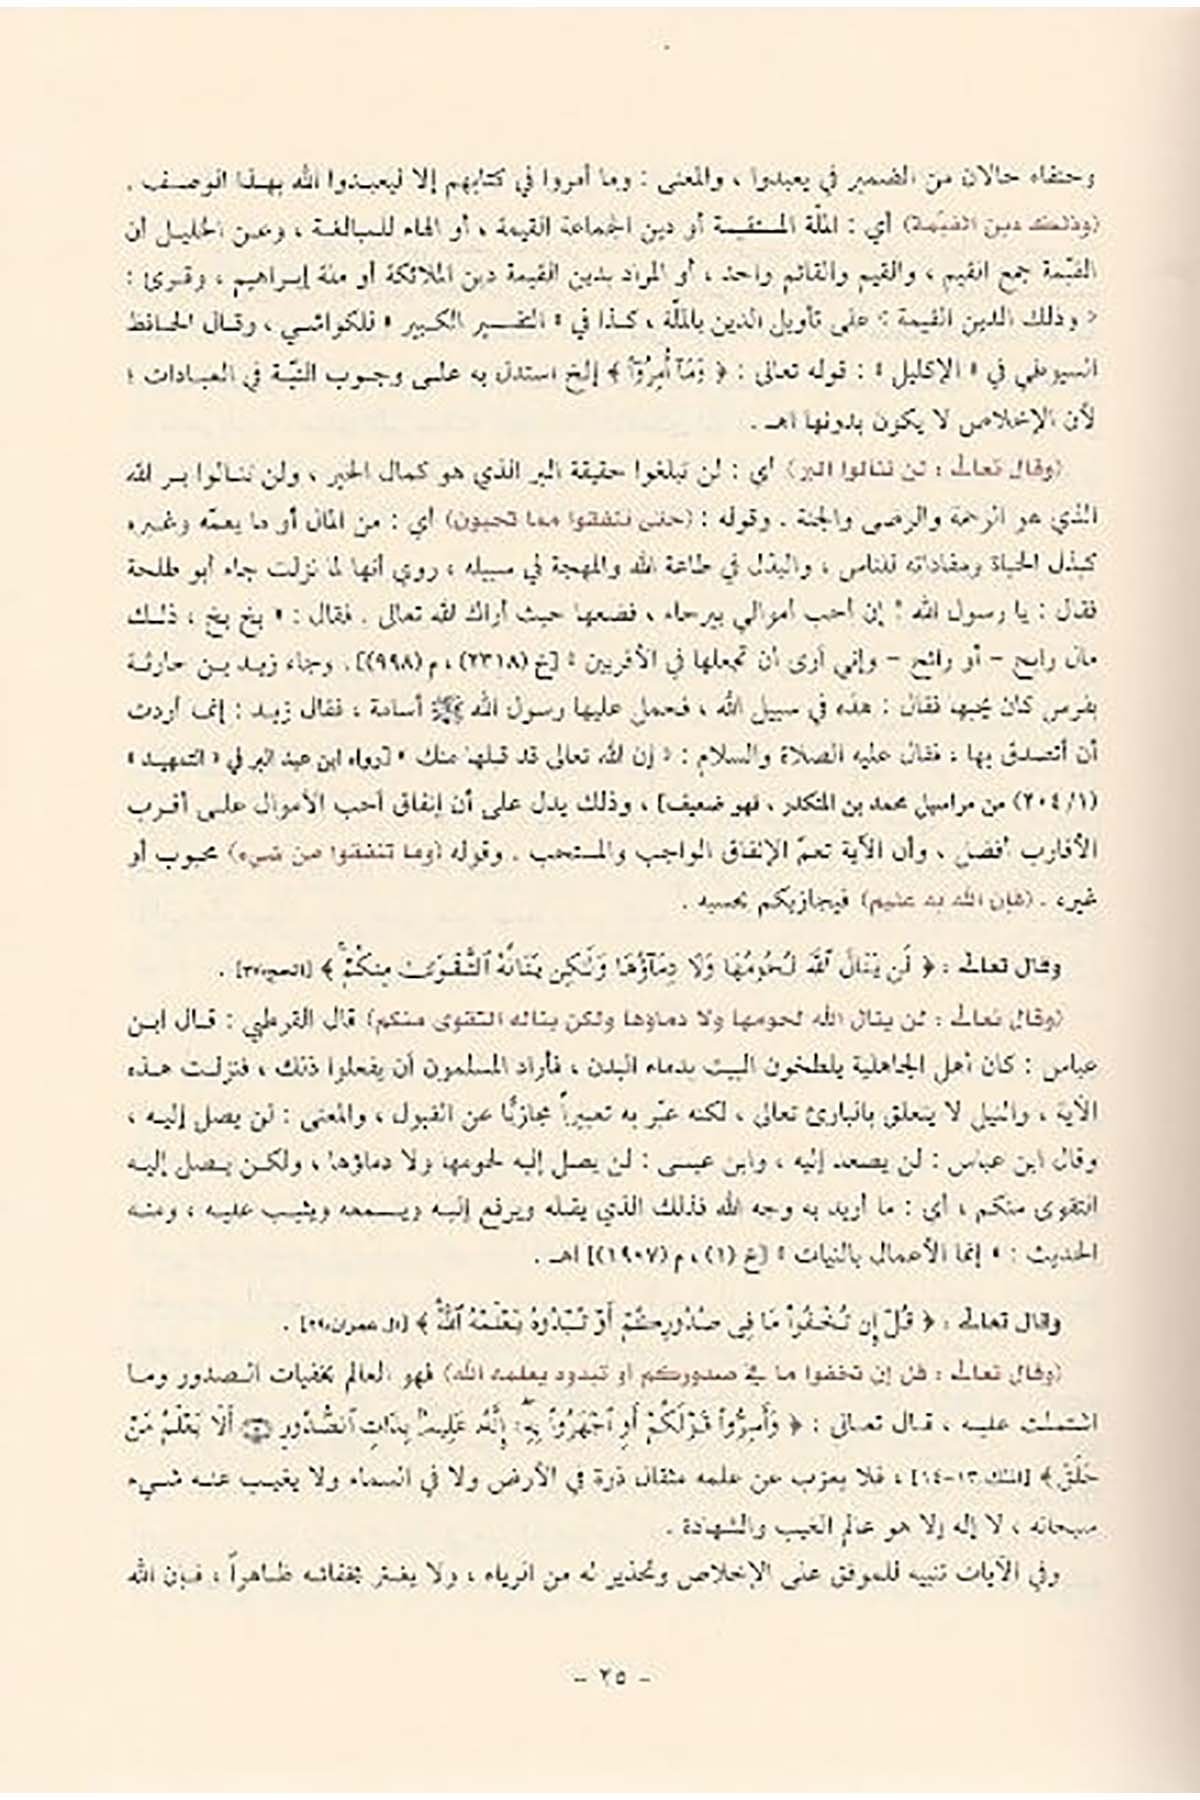 وحنفاء حالان من الضمير في يعبدوا ، والمعنى : وما أمروا في كتابهم إلا ليعبدوا الله بهذا الوصف .
(وذلك دين القيمة) أي : الملّة المستقيمة أو دين الجماعة القيمة ، أو الهاء للمبالغة ، وعن الخليل أن
القيّمة جمع القيم ، والقيم والقائم واحد ، أو المراد بدين القيمة دين الملائكة أو ملة إبراهيم ، وقرئ :
« وذلك الدين القيمة » على تأويل الدين بالملّة ، كذا في « التفسير الكبير » للكواشي ، وقال الحافظ
السيوطي في « الإكليل » : قوله تعالى : ﴿ وَمَآ أُمِرُوٓا۟ ﴾ إلخ استدل به على وجوب النيّة في العبادات ؛
لأن الإخلاص لا يكون بدونها اهـ .
(وقال تعالى : لن تنالوا البر) أي : لن تبلغوا حقيقة البر الذي هو كمال الخير ، ولن تنالوا بر الله
الذي هو الرحمة والرضى والجنة . وقوله : (حتى تنفقوا مما تحبون) أي : من المال أو ما يعمّه وغيره
كبذل الحياة ومفاداته للناس ، والبذل في طاعة الله والمهجة في سبيله ، روي أنها لما نزلت جاء أبو طلحة
فقال : يا رسول الله ! إن أحب أموالي بيرحاء ، فضعها حيث أراك الله تعالى . فقال : « بخ بخ ، ذلك
مال رابح - أو رائح - وإني أرى أن تجعلها في الأقربين » [خ (٢٣١٨) ، م (٩٩٨)] . وجاء زيد بن حارثة
بفرس كان يحبها فقال : هذه في سبيل الله ، فحمل عليها رسول الله ﷺ أسامة ، فقال زيد : إنما أردت
أن أتصدق بها ، فقال عليه الصلاة والسلام : « إن الله تعالى قد قبلها منك » [رواه ابن عبد البر في « التمهيد »
(١/ ٢٠٤) من مراسيل محمد بن المنكدر ، فهو ضعيف] ، وذلك يدل على أن إنفاق أحب الأموال على أقرب
الأقارب أفضل ، وأن الآية تعمّ الإنفاق الواجب والمستحب . وقوله (وما تنفقوا من شيء) محبوب أو
غيره . (فإن الله به عليم) فيجازيكم بحسبه .
وقال تعالى : ﴿ لَن يَنَالَ ٱللَّهَ لُحُومُهَا وَلَا دِمَآؤُهَا وَلَٰكِن يَنَالُهُ ٱلتَّقْوَىٰ مِنكُمْ ﴾ [الحج:٣٧] .
(وقال تعالى : لن ينال الله لحومها ولا دماؤها ولكن يناله التقوى منكم) قال القرطبي : قال ابن
عباس : كان أهل الجاهلية يلطخون البيت بدماء البدن ، فأراد المسلمون أن يفعلوا ذلك ، فنزلت هذه
الآية ، والنيل لا يتعلق بالبارئ تعالى ، لكنه عبّر به تعبيراً مجازيًّا عن القبول ، والمعنى : لن يصل إليه ،
وقال ابن عباس : لن يصعد إليه ، وابن عيسى : لن يصل إليه لحومها ولا دماؤها ، ولكن يصل إليه
التقوى منكم ، أي : ما أريد به وجه الله فذلك الذي يقبله ويرفع إليه ويسمعه ويثيب عليه ، ومنه
الحديث : « إنما الأعمال بالنيات » [خ (١) ، م (١٩٠٧)] اهـ .
وقال تعالى : ﴿ قُلْ إِن تُخْفُوا۟ مَا فِى صُدُورِكُمْ أَوْ تُبْدُوهُ يَعْلَمْهُ ٱللَّهُ ﴾ [آل عمران:٢٩] .
(وقال تعالى : قل إن تخفوا ما في صدوركم أو تبدوه يعلمه الله) فهو العالم بخفيات الصدور وما
اشتملت عليه ، قال تعالى : ﴿ وَأَسِرُّوا۟ قَوْلَكُمْ أَوِ ٱجْهَرُوا۟ بِهِۦٓ إِنَّهُۥ عَلِيمٌۢ بِذَاتِ ٱلصُّدُورِ أَلَا يَعْلَمُ مَنْ
خَلَقَ ﴾ [الملك:١٣-١٤] ، فلا يعزب عن علمه مثقال ذرة في الأرض ولا في السماء ولا يغيب عنه شيء
سبحانه ، لا إله إلا هو عالم الغيب والشهادة .
وفي الآيات تنبيه للموفق على الإخلاص وتحذير له من الرياء ، ولا يغتر بخفائه ظاهراً ، فإن الله
- ٢٥ -